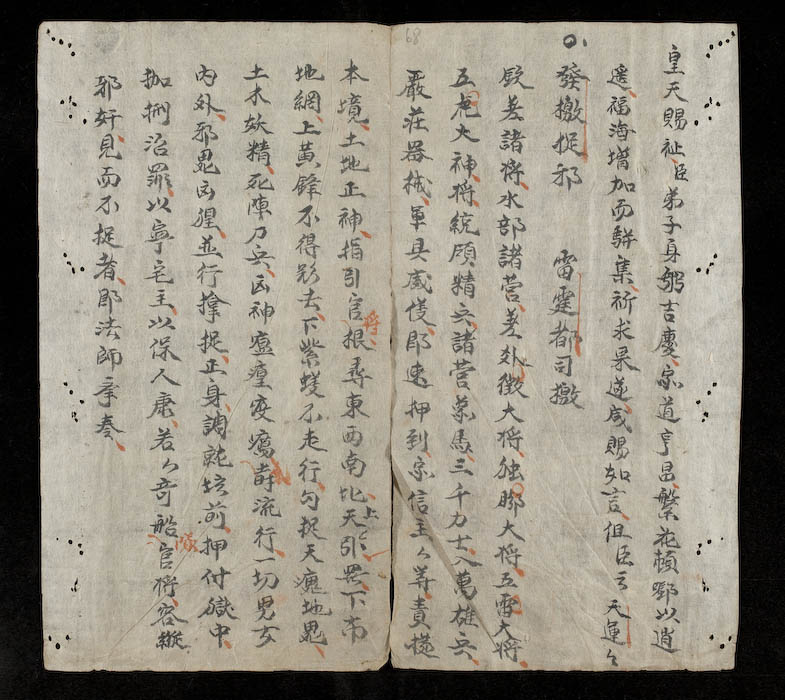 皇天賜祉臣弟子身躬吉慶家道亨昌繁花頓以逍
遥福海增加而駢集祈求果遂咸賜如言但臣云天運々
發檄捉邪 雷霆都司檄
欽差諸將水部諸营差外徵大將独脚大將五雷大將
五虎大神將統領精兵諸营菜馬三千力士八萬雄兵
嚴莊器械軍具威慢即速押到家信主々筭責搖
本境土地正神指引官將根尋東西南北天上引罡下布
地網上黄鋒不得飛去下紫蟻不走行勾捉天瘟地鬼
土木妖精死陣刀兵凶神瘟瘴疫癘流行一切男女
内外邪鬼凶猩並行拿捉正身調就坛前押付獄中
枷捌治罪以寧宅主以保人康若々奇船隊官將容縱
邪奸見而不捉者即法師奉奏
68